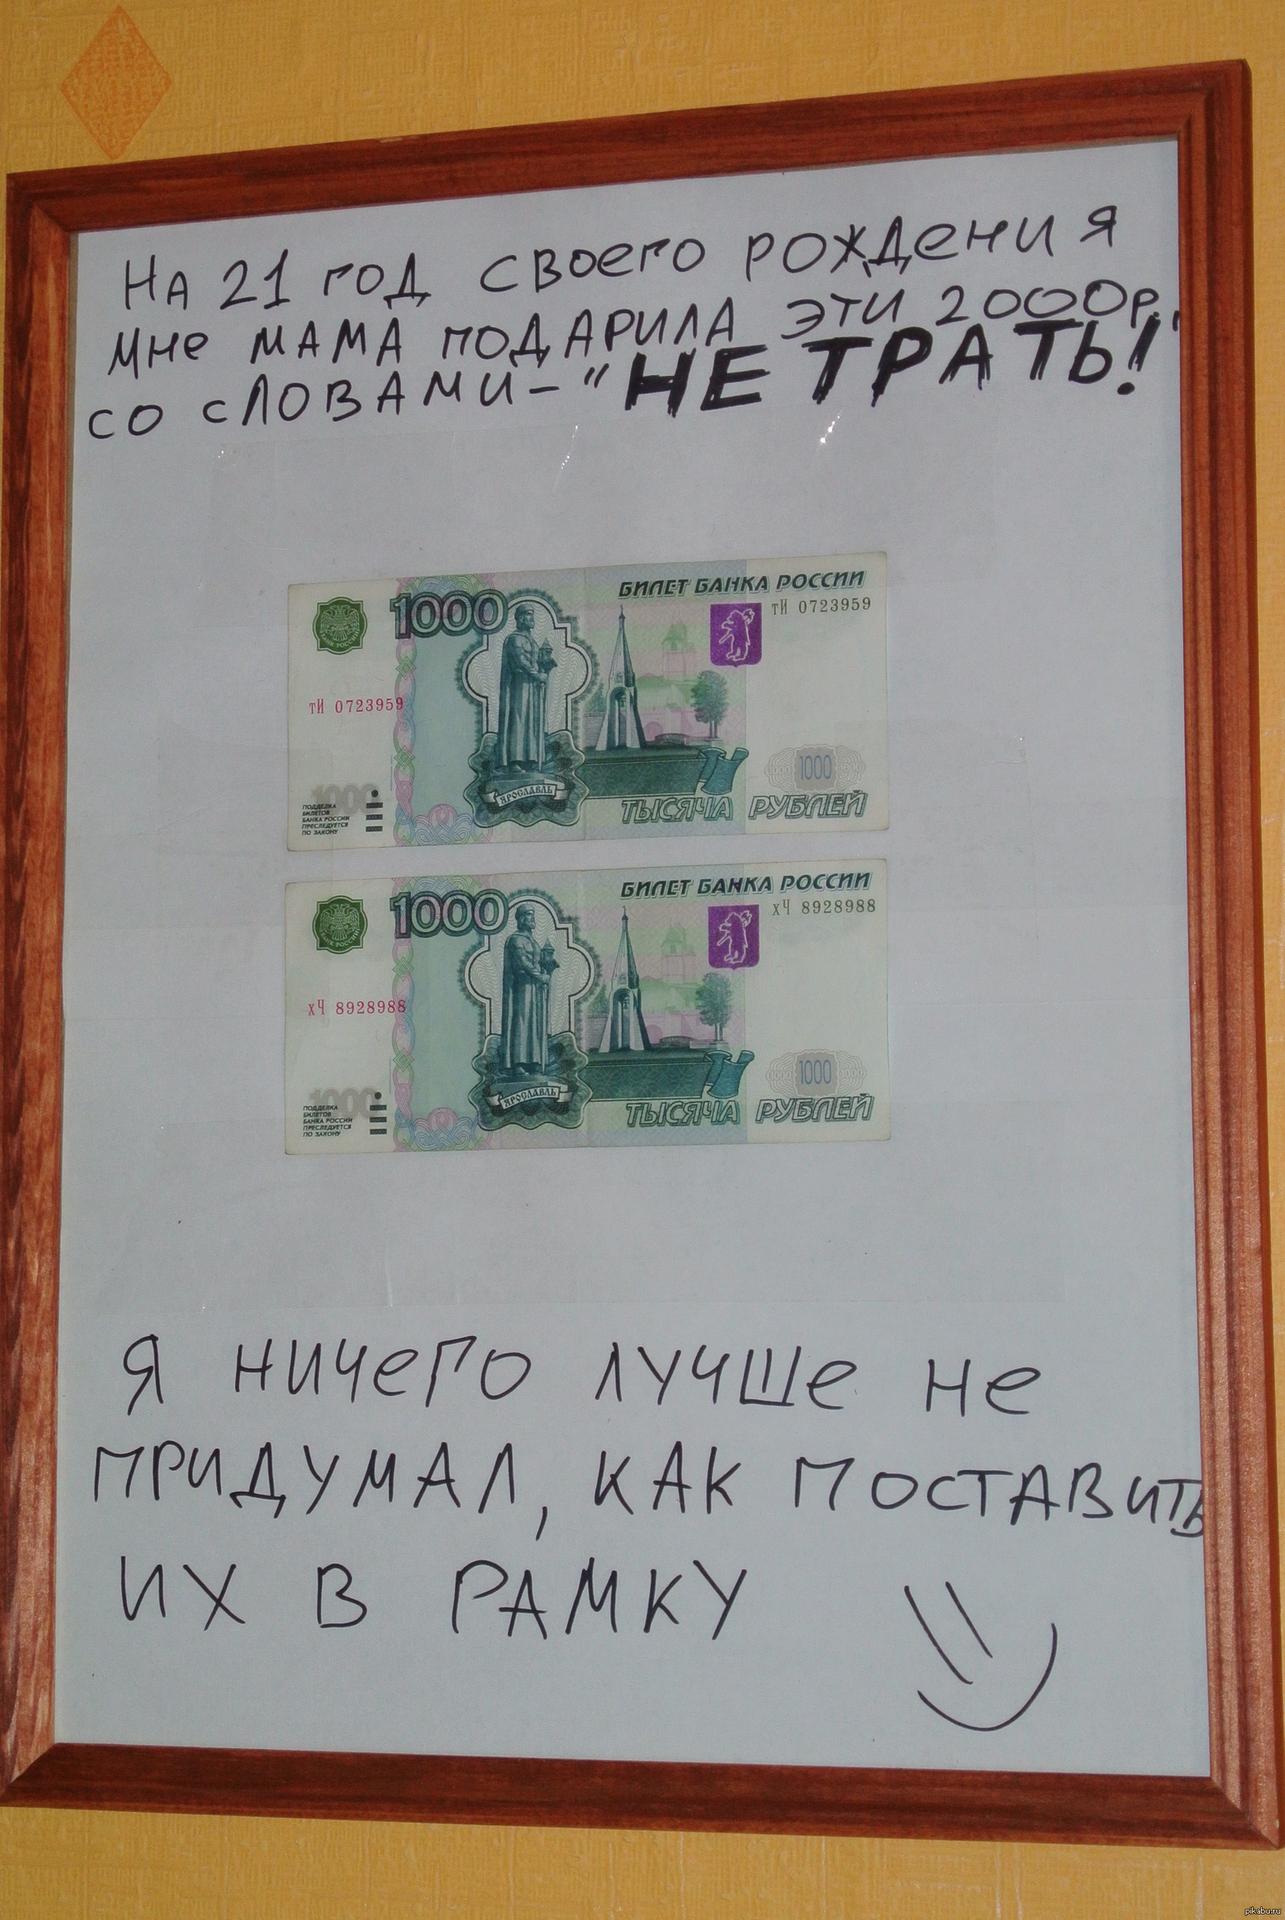 На 21 год своего рождения
мне мама подарила эти 2000р.,
со словами – “НЕ ТРАТЬ!
БИЛЕТ БАНКА РОССИИ
1000
тИ 0723959
тИ 0723959
ЯРОСЛАВЛЬ
1000
1000
ПОДДЕЛКА
БИЛЕТОВ
БАНКА РОССИИ
ПРЕСЛЕДУЕТСЯ
ПО ЗАКОНУ
ТЫСЯЧА РУБЛЕЙ
БИЛЕТ БАНКА РОССИИ
1000
хЧ 8928988
хЧ 8928988
ЯРОСЛАВЛЬ
1000
1000
ПОДДЕЛКА
БИЛЕТОВ
БАНКА РОССИИ
ПРЕСЛЕДУЕТСЯ
ПО ЗАКОНУ
ТЫСЯЧА РУБЛЕЙ
Я ничего лучше не
придумал, как поставить
их в рамку
pikabu.ru